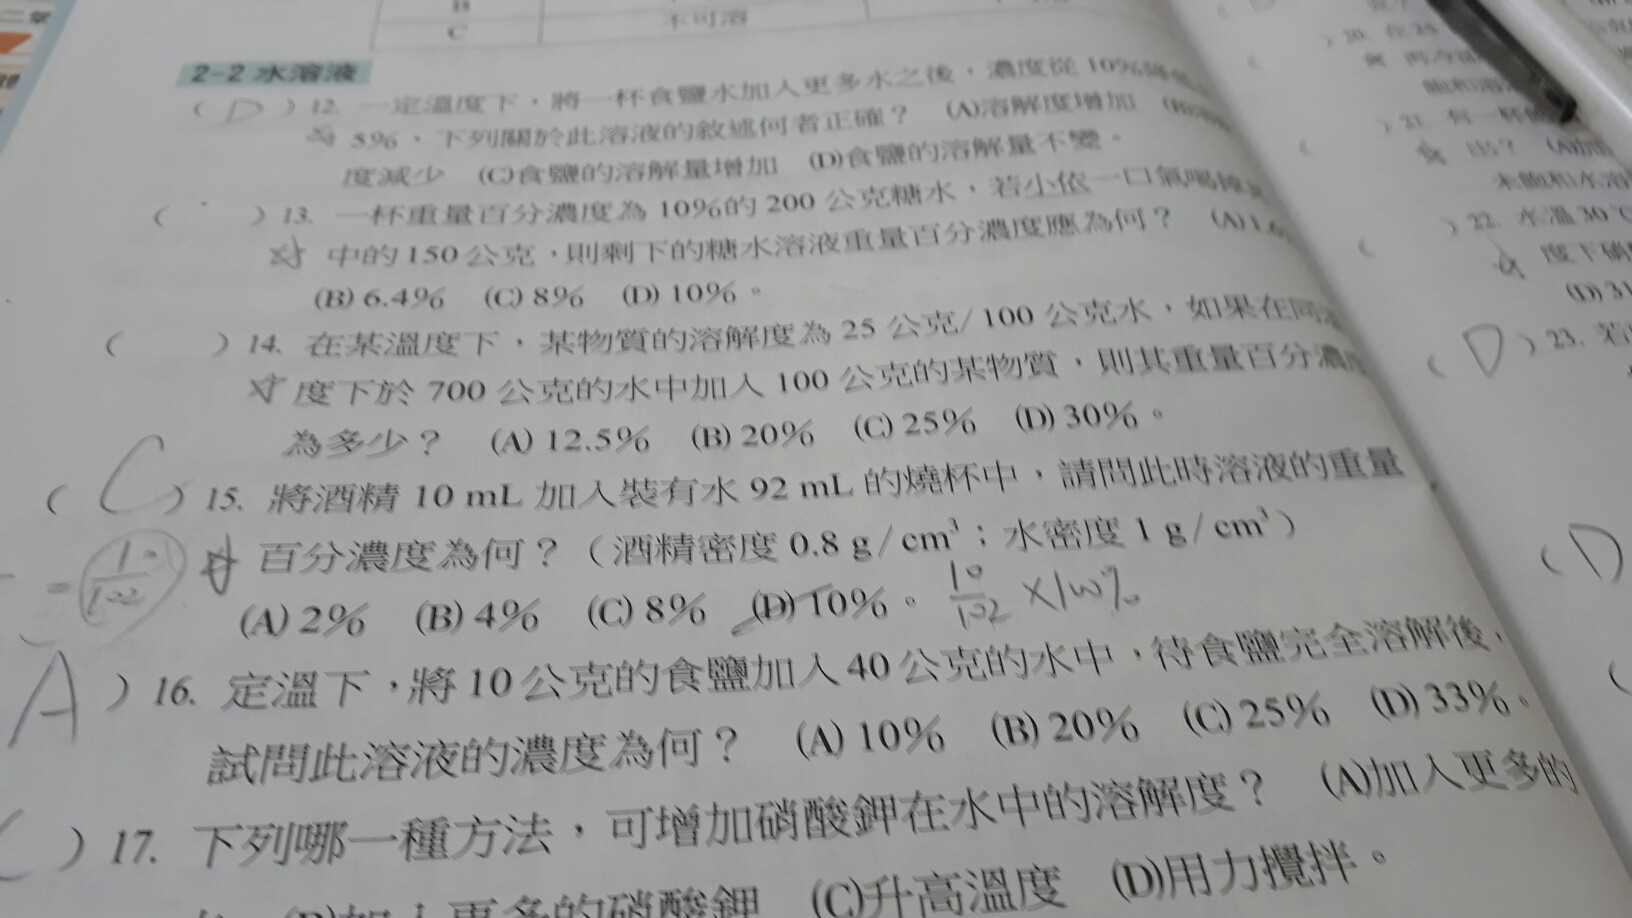 B
C 不可溶
2-2 水溶液
( D ) 12. 一定溫度下，將一杯食鹽水加入更多水之後，濃度從 10%
5%，下列關於此溶液的敘述何者正確？ (A)溶解度增加
度減少 (C)食鹽的溶解量增加 (D)食鹽的溶解量不變。
( ) 13. 一杯重量百分濃度為 10%的 200 公克糖水，若小依一口氣喝掉
中的 150 公克，則剩下的糖水溶液重量百分濃度應為何？ (A) 1.6
(B) 6.4% (C) 8% (D) 10%。
( ) 14. 在某溫度下，某物質的溶解度為 25 公克/ 100 公克水，如果在同
度下於 700 公克的水中加入 100 公克的某物質，則其重量百分濃度
為多少？ (A) 12.5% (B) 20% (C) 25% (D) 30%。
( C ) 15. 將酒精 10 mL 加入裝有水 92 mL 的燒杯中，請問此時溶液的重量
百分濃度為何？（酒精密度 0.8 g / cm³；水密度 1 g / cm³）
(A) 2% (B) 4% (C) 8% (D) 10%。 10/102 ×100%
A ) 16. 定溫下，將 10 公克的食鹽加入 40 公克的水中，待食鹽完全溶解後，
試問此溶液的濃度為何？ (A) 10% (B) 20% (C) 25% (D) 33%。
( ) 17. 下列哪一種方法，可增加硝酸鉀在水中的溶解度？ (A)加入更多的
(B)加入更多的硝酸鉀 (C)升高溫度 (D)用力攪拌。
20.
) 21. 有一杯
出？
) 22. 水溫 30℃
度下硝
(D) 31
( D ) 23. 若
( D